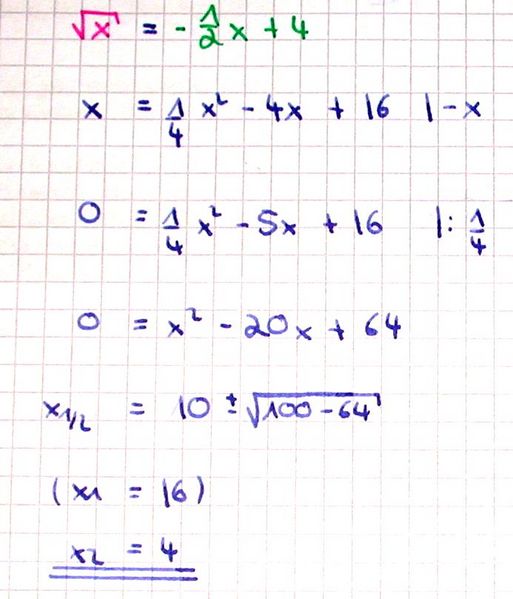 √x = - 1/2 x + 4
x = 1/4 x² - 4x + 16 | - x
0 = 1/4 x² - 5x + 16 | : 1/4
0 = x² - 20x + 64
x1/2 = 10 ± √100 - 64
(x1 = 16)
x2 = 4